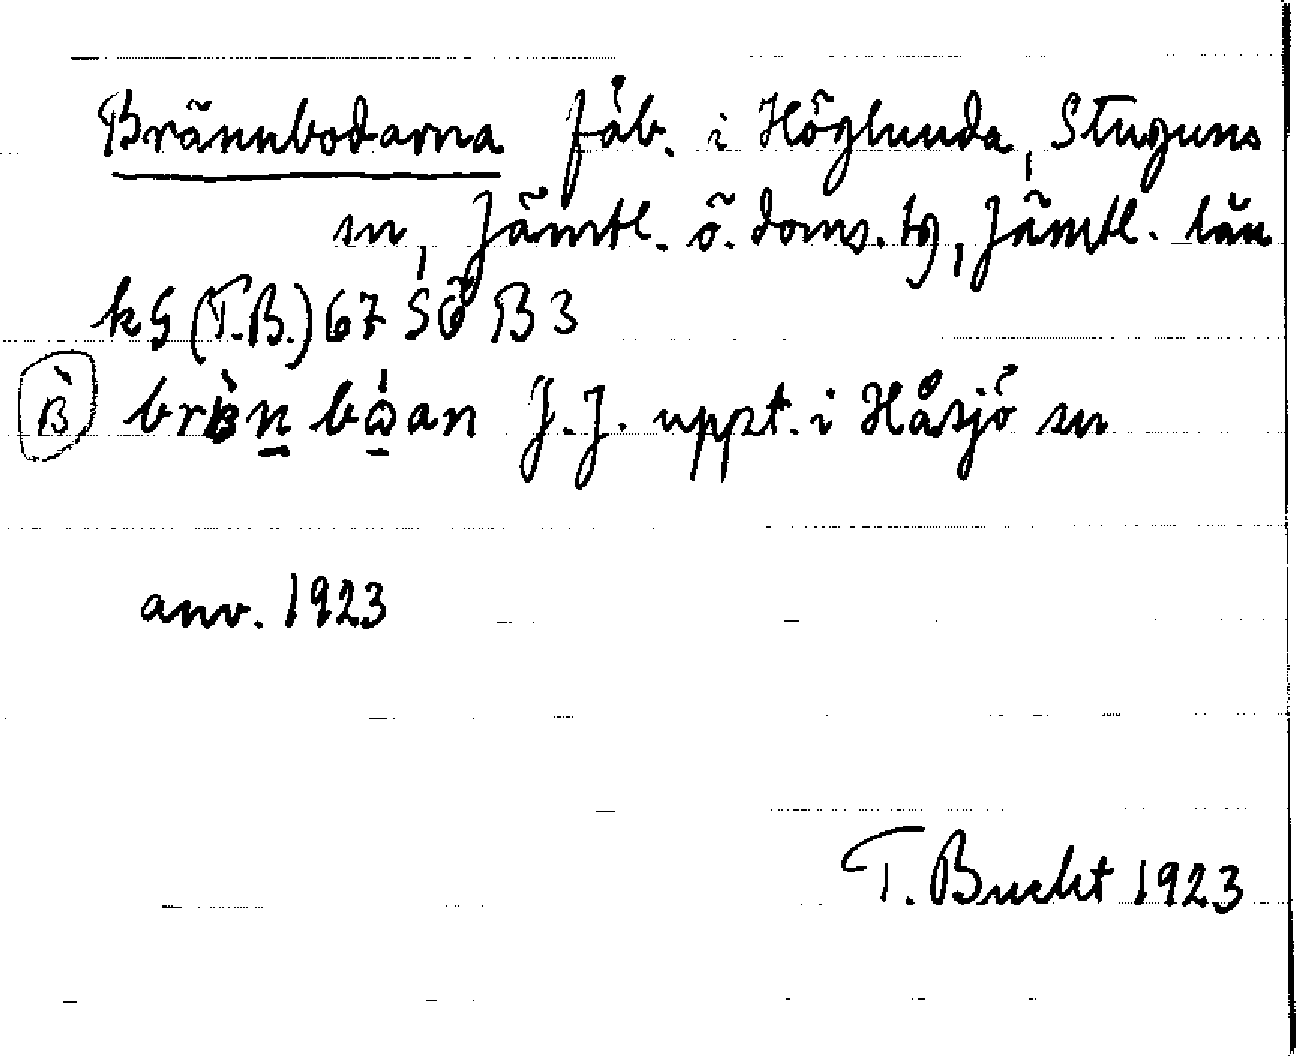 Brännbodarna fäb. i Höglunda, Stuguns
sn, Jämtl. ö. doms. tg, Jämtl. län
kG (T.B.) 67 SÖ B 3
J.J. uppt. i Håsjö sn
anv. 1923
T. Bucht 1923